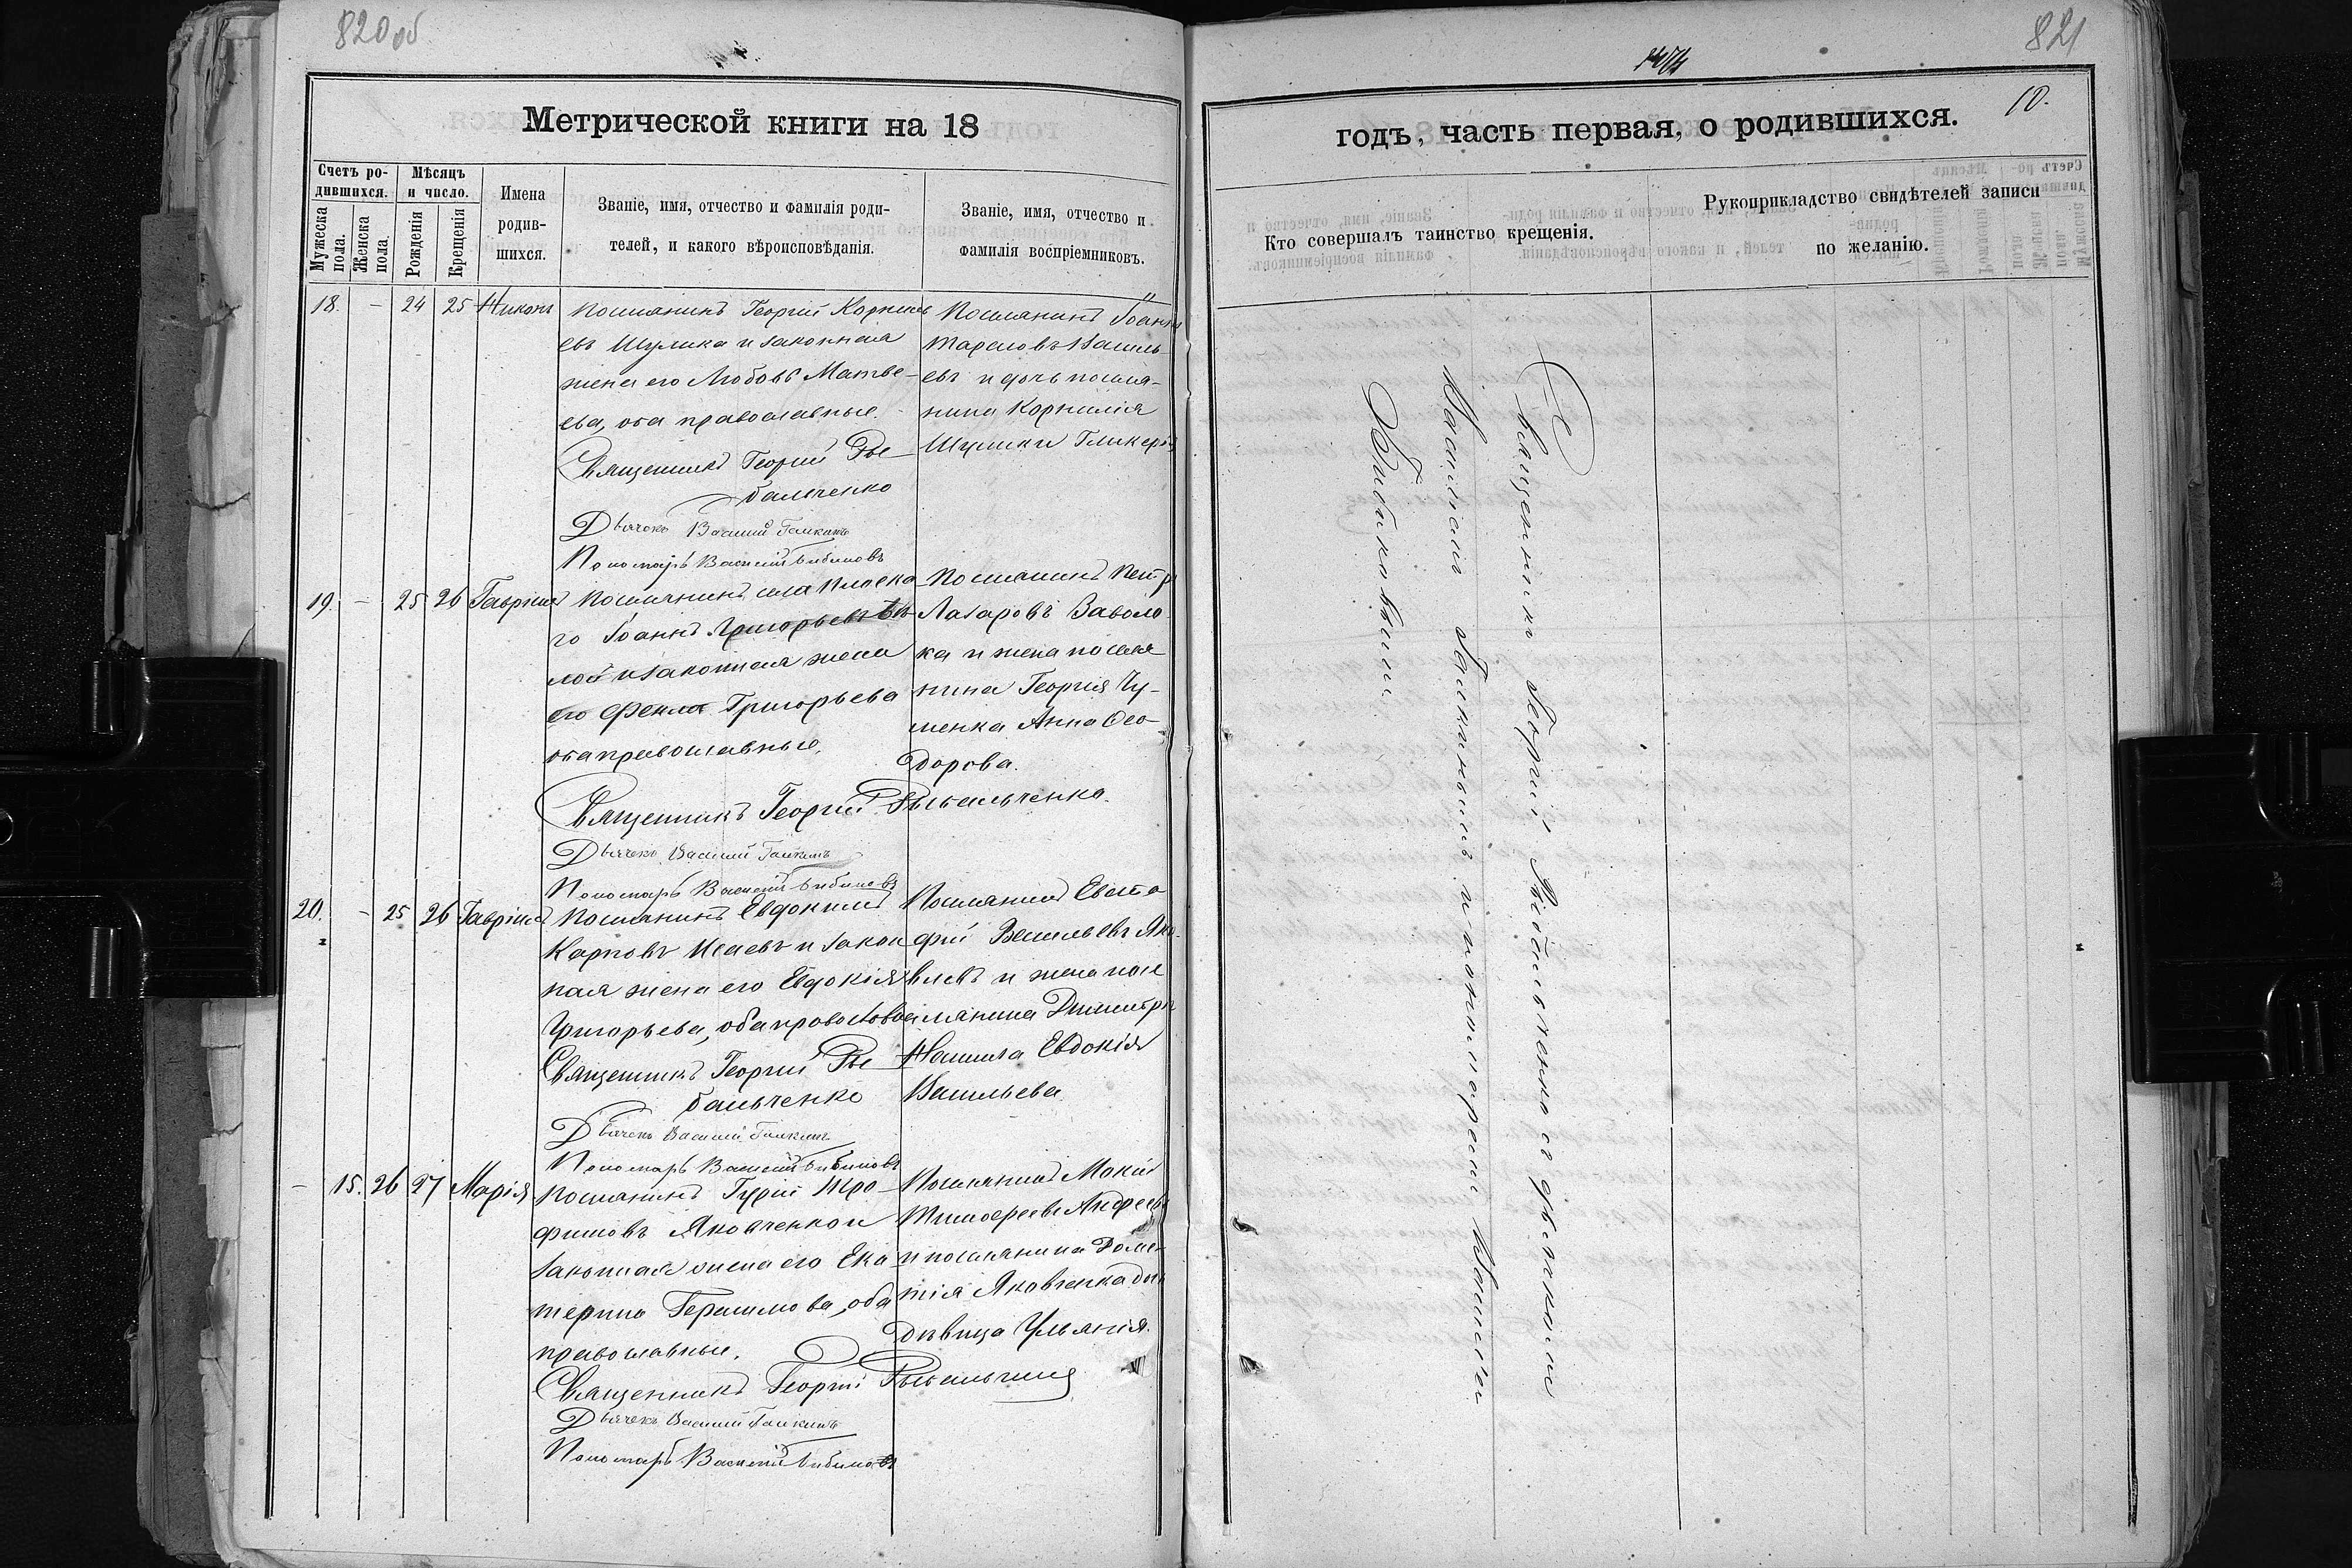 820 об
Метрической книги на 18
Счетъ ро-
дившихся.
Мѣсяцъ
и число.
Мужеска
пола.
Женска
пола.
Рожденія
Крещенія
Имена
родив-
шихся.
Званіе, имя, отчество и фамилія роди-
телей, и какого вѣроисповѣданія.
Званіе, имя, отчество и
фамилія воспріемниковъ.
18. - 24 25 Никонъ
Поселянинъ Георгій Корнилі
евъ Шулика и законная
жена его Любовь Матве-
ева, оба православные.
Священникъ Георгій Ры-
бальченко
Дьячекъ Василій Галкинъ
Пономарь Василій Бибиковъ
Поселянинъ Іоаннъ
Тарасовъ Василь-
евъ и дочь поселя-
нина Корнилія
Шулики Гликерія
19. - 25 26 Гавріилъ
Поселянинъ села
го Іоаннъ Григорьевъ
и законная жена
его Фекла Григорьева
оба православные.
Священникъ Георгій Рыбальченко.
Дьячекъ Василій Галкинъ
Пономарь Василій Бибиковъ
Поселянинъ Петръ
Лазаровъ Заволо
ка и жена поселя
нина Георгія Чу-
менка Анна Ѳео-
дорова.
20. - 25 26 Гавріилъ
Поселянинъ Евдокимъ
Карповъ Исаевъ и закон
ная жена его Евдокія
Григорьева, оба православ
Священникъ Георгій Ры
бальченко
Дьячекъ Василій Галкинъ
Пономарь Василій Бибиковъ
Поселянинъ Евста
фій Васильевъ Яко-
влевъ и жена посе
лянина Димитрія
Евдокія
Васильева
- 15. 26 27 Марія
Поселянинъ Гурій Тро-
фимовъ Яковченко и
законная жена его Ека
терина Герасимова, оба
православные.
Священникъ Георгій Рыбальченко
Дьячекъ Василій Галкинъ
Пономарь Василій Бибиковъ
Поселянинъ Мокій
Тимофеевъ Андреевъ
и поселянина Доме-
тія Яковченка
дѣвица Ульянія.
821
10.
годъ, часть первая, о родившихся.
Кто совершалъ таинство крещенія.
Рукоприкладство свидѣтелей записи
по желанію.
Священникъ Георгій Рыбальченко съ дьячкомъ
Василіемъ Галкинымъ и пономаремъ Василіемъ
Бибиковымъ